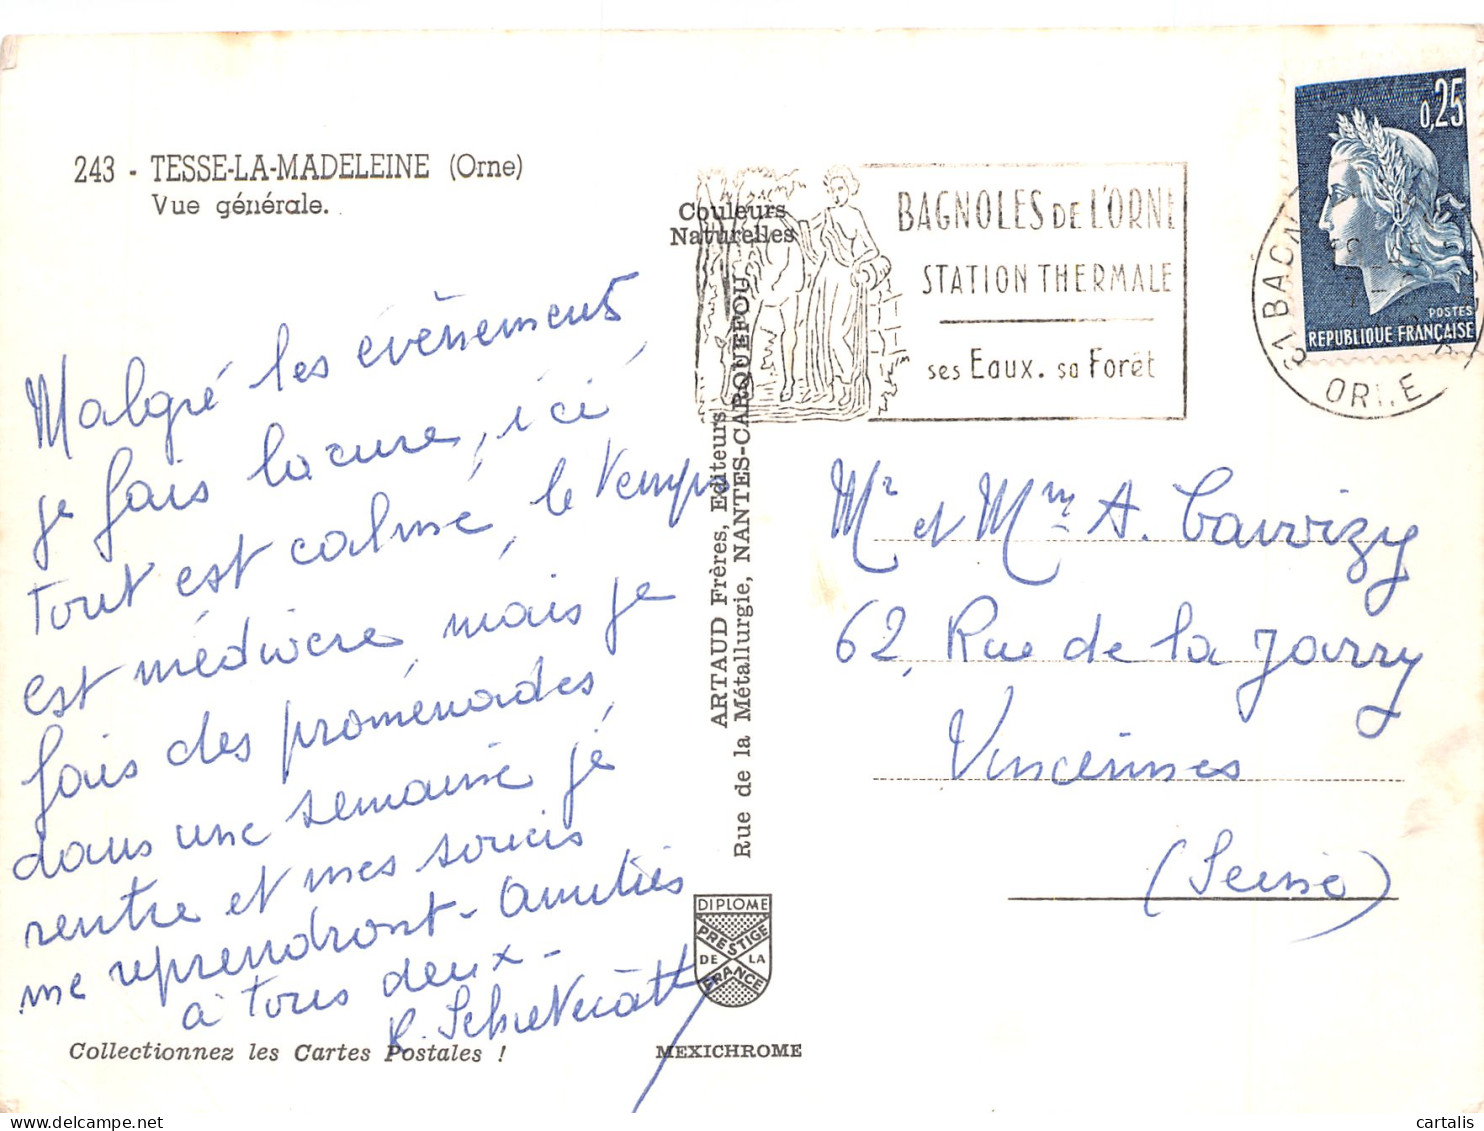 243 - TESSE-LA-MADELEINE (Orne)
Vue générale.
Malgré les évènements
je fais la cure, ici,
tout est calme, le temps
est médiocre, mais je
fais des promenades,
dans une semaine je
rentre et mes soucis
me reprendront - amitiés
à tous deux -
Collectionnez les Cartes Postales !
Couleurs
Naturelles
ARTAUD Frères, Editeurs
Rue de la Métallurgie, NANTES-CARQUEFOU
DIPLOME
PRESTIGE
DE LA
FRANCE
MEXICHROME
BAGNOLES DE L'ORNE
STATION THERMALE
ses Eaux. sa Forêt
0,25
POSTES
REPUBLIQUE FRANÇAISE
61 BAGN
ORNE
Mr et Mme A.
62, Rue de la Jarry
Vincennes
(Seine)
cartalis